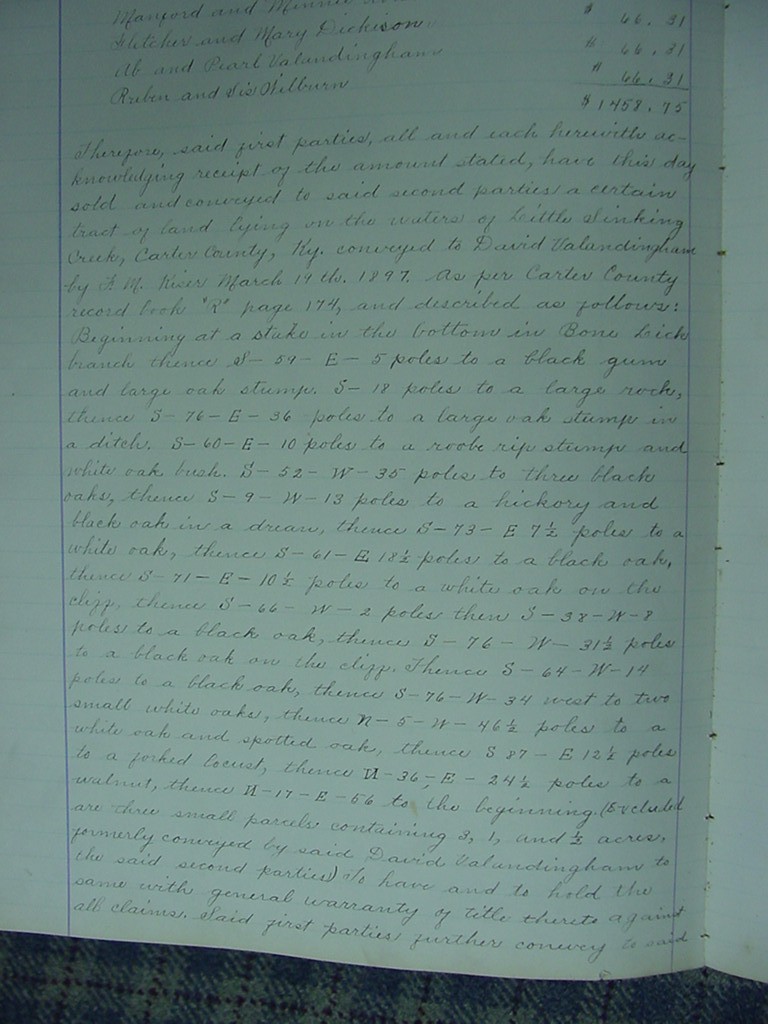 Manford and Minnie
Fletcher and Mary Dickeson $ 66.31
Ab and Pearl Valandingham $ 66.31
Rueben and Sis Wilburn $ 66.31
$1458.75
Therefore, said first parties, all and each herewith ac-
knowledging receipt of the amount stated, have this day
sold and conveyed to said second parties a certain
tract of land lying on the waters of Little Sinking
Creek, Carter County, Ky. conveyed to David Valandingham
by F. M. Kiser March 19th. 1897. As per Carter County
record book "R" page 174, and described as follows:
Beginning at a stake in the bottom in Bone Lick
branch thence S-59-E-5 poles to a black gum
and large oak stump. S-18 poles to a large rock,
thence S-76-E-36 poles to a large oak stump in
a ditch. S-60-E-10 poles to a roobe rip stump and
white oak bush. S-52-W-35 poles to three black
oaks, thence S-9-W-13 poles to a hickory and
black oak in a drean, thence S-73-E 7½ poles to a
white oak, thence S-61-E 18½ poles to a black oak,
thence S-71-E-10½ poles to a white oak on the
cliff, thence S-66-W-2 poles then S-38-W-8
poles to a black oak, thence S-76-W-31½ poles
to a black oak on the cliff. Thence S-64-W-14
poles to a black oak, thence S-76-W-34 west to two
small white oaks, thence N-5-W-46½ poles to a
white oak and spotted oak, thence S 87-E 12½ poles
to a forked locust, thence N-36-E-24½ poles to a
walnut, thence N-17-E-56 to the beginning. (Excluded
are three small parcels containing 3, 1, and ½ acres,
formerly conveyed by said David Valandingham to
the said second parties) To have and to hold the
same with general warranty of title thereto against
all claims. Said first parties further convey to said